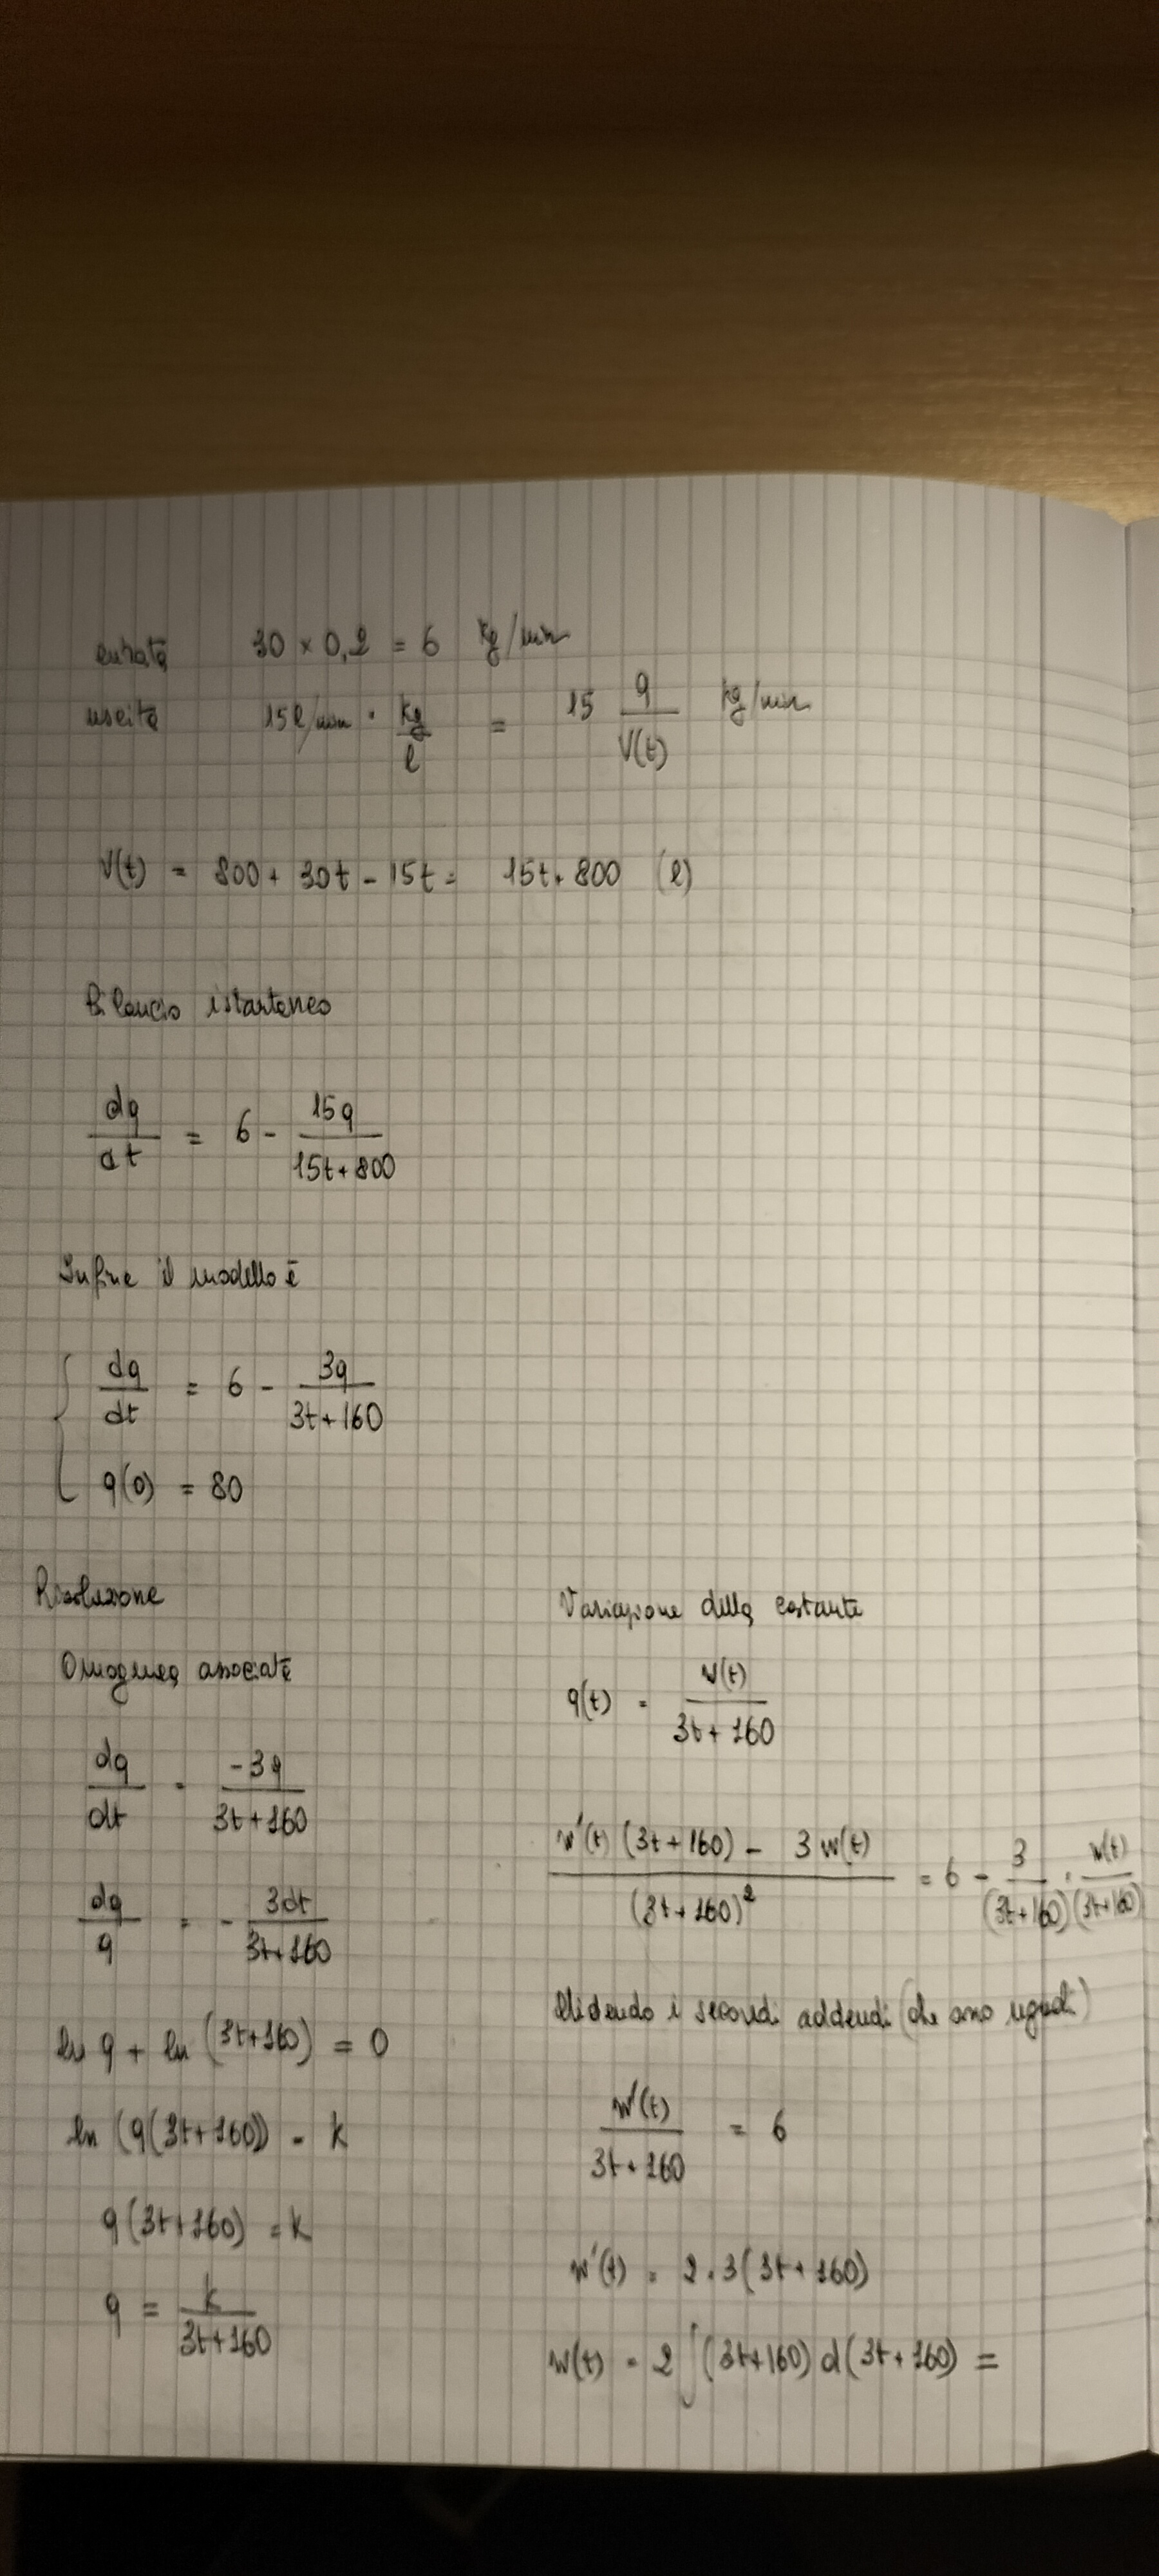 entrata 30 × 0,2 = 6 kg/min
uscita 15 l/min · kg/l = 15 q/V(t) kg/min
V(t) = 800 + 30t - 15t = 15t + 800 (l)
Bilancio istantaneo
dq/dt = 6 - 15q/(15t + 800)
Infine il modello è
dq/dt = 6 - 3q/(3t + 160)
q(0) = 80
Risoluzione
Omogenea associata
dq/dt = -3q/(3t + 160)
dq/q = - 3dt/(3t + 160)
ln q + ln (3t + 160) = 0
ln (q(3t + 160)) = k
q(3t + 160) = k
q = k/(3t + 160)
Variazione della costante
q(t) = w(t)/(3t + 160)
(w'(t) (3t + 160) - 3 w(t))/(3t + 160)² = 6 - 3/(3t + 160) · w(t)/(3t + 160)
Elidendo i secondi addendi (che sono uguali)
w'(t)/(3t + 160) = 6
w'(t) = 2 · 3 (3t + 160)
w(t) = 2 ∫ (3t + 160) d(3t + 160) =